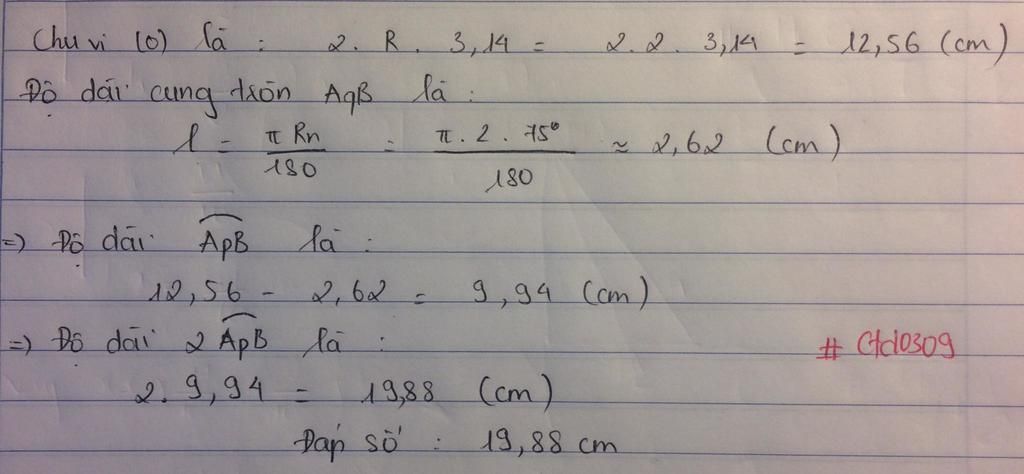 Chu vi (O) là : 2. R. 3,14 = 2. 2. 3,14 = 12,56 (cm)
Độ dài cung tròn AqB là :
l = π Rn / 180 = π. 2. 75° / 180 ≈ 2,62 (cm)
=) Độ dài ApB là :
12,56 - 2,62 = 9,94 (cm)
=) Độ dài 2 ApB là :
# Ctd0309
2. 9,94 = 19,88 (cm)
Đáp số : 19,88 cm